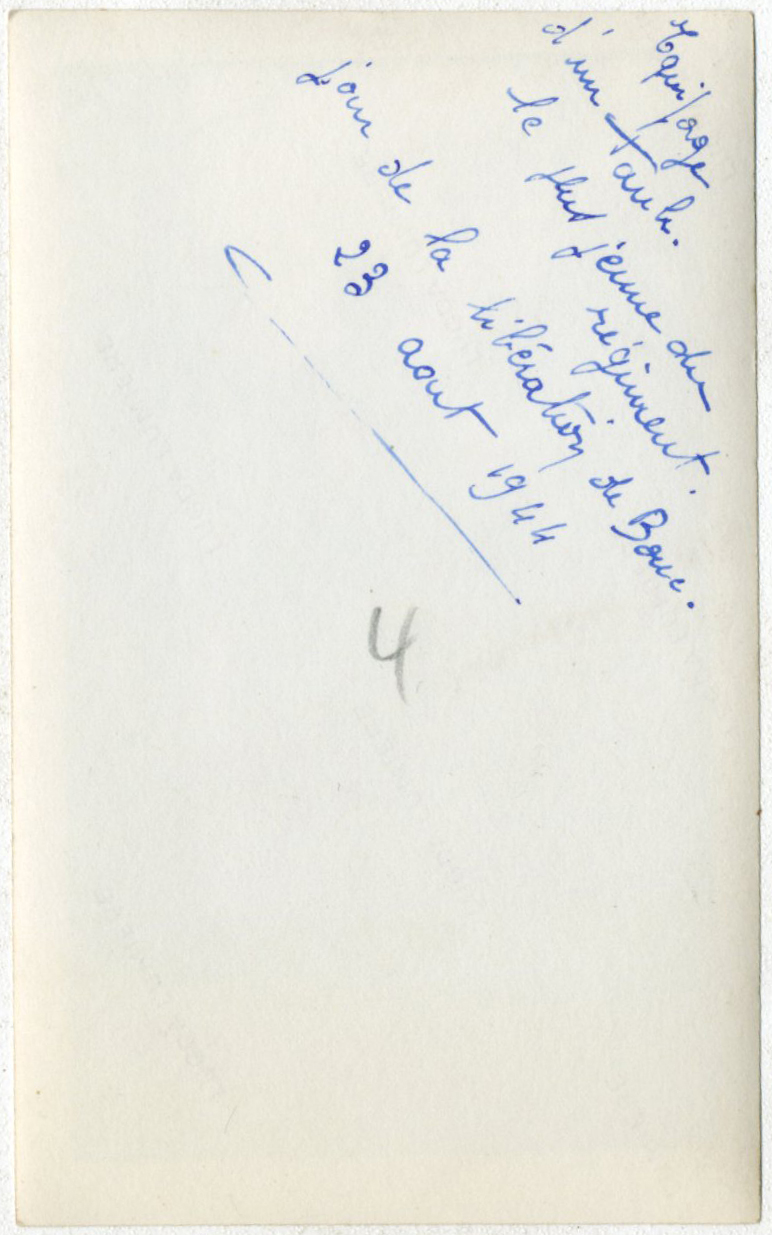 Equipage
d'un Tank.
le plus jeune du
régiment.
Jour de la libération de Bouc.
23 aout 1944
4